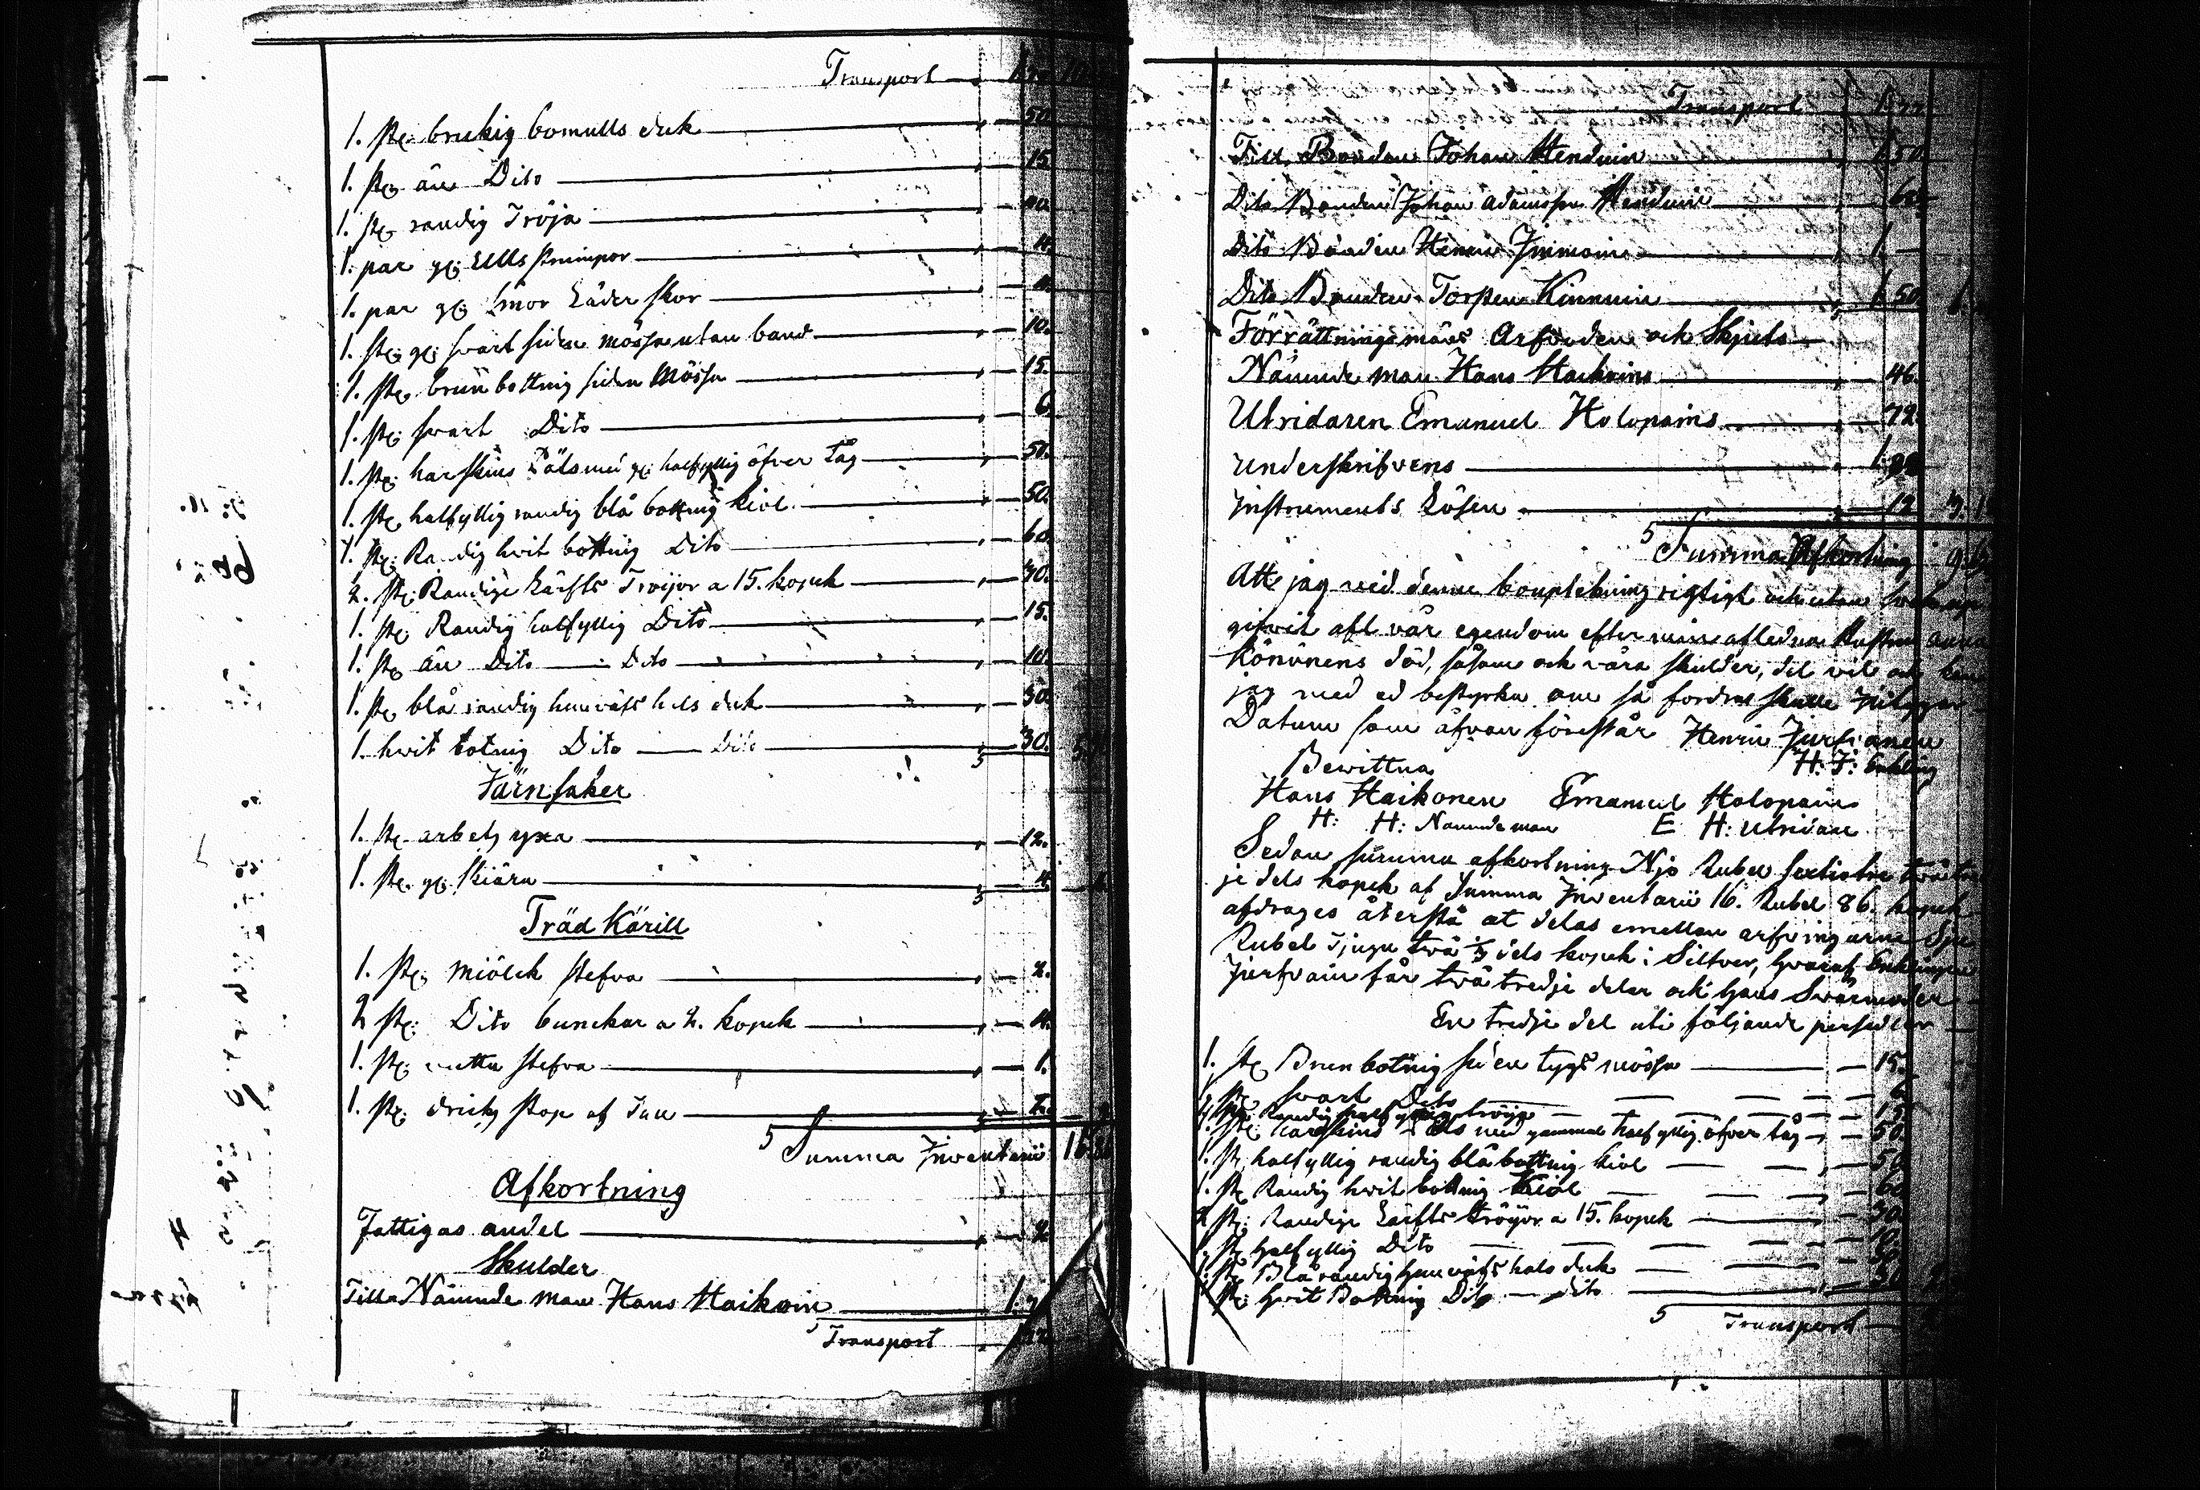 Transport
1. st: brukig bomulls duk — 50.
1. st: än Dito — 15.
1. st: randig Tröja — 20.
1. par gl: Ulls strumpor — 4.
1. par gl: Smor Läder skor — 4.
1. st: gl: svart siden mössa utan band — 10.
1. st: brun bottnig siden Mössa — 15.
1. st: svart Dito — 6.
1. st: harskins med gl: halfyllig öfver tåg — 50.
1. st: halfyllig randig blå bottnig kiol — 50.
1. st: Randig hvit bottnig Dito — 60.
2. st: Randige Lärfts Tröijor a 15. kopek — 30.
1. st: Randig halfyllig Dito — 15.
1. st: än Dito — Dito — 10.
1. st: blå randig hals duk — 30.
1. hvit botnig Dito — Dito — 30.
Järnsaker
1. st: arbets yxa — 12.
1. st: gl: skiära — 4.
Träd Kärill
1. st: miölck stefva — 2.
2 st: Dito bunckar a 2. kopek — 4.
1. st: stefva — 1.
1. st: dricks stop af — 2.
Summa Inventarii 16.86
Afkortning
Fattigas andel — 2
Skulder
Till Nämnde man Hans Haikoin — 1.
Transport
Transport
Till Bonden Johan — 1.50.
Dito Bonden Johan Adamsson
Dito Bonden Henric Immoin — 1. —
Dito Bonden Torsten Kinnuin — 1.50.
Förrättningsmäns Arfvoden och Skjuts
Nämnde man Hans Haikoins — 46.
Utridaren Emanuel Holopains — 72.
Underskrifvens — 1.
Instruments Lösen — 12
Summa Afkortning 9.
Att jag vid denne bouptekning rigtigt och utan svek upp
gifvit all vår egendom efter min afledna Hustru Anna
Könönens död, såsom och våra skulder, det vil och kan
jag med ed bestyrka om så fordras skulle
Datum som åfvan förestår Henric
H: J: Enkling
Bevittna
Hans Haikonen Emanuel Holopain
H: H: Nämndeman E H: Utridare
Sedan summa afkortning Njo Rubel
je dels kopek af Summa Inventarii 16. Rubel 86. kopek
afdrages återstå at delas emellan arfvingarne Sju
Rubel tjugu två ⅓ dels kopek i Silfver, hvaraf Enklingen
får två tredje delar och hans Svärmoder
En tredje del uti följande persedlar
1. st: Brunbotnig siden tygs mössa — 15.
1. st: svart Dito — 6
1. st: Randig halfyllig tröja — 15.
1. st: harskins med gammal halfyllig öfver tåg — 50.
1. st: halfyllig randig blåbottnig kiol — 50
1. st: Randig hvit bottnig Kiol — 60
2 st: Randige Lärfts tröijor a 15. kopek — 30.
1. st: halfyllig Dito — 10.
1. st: Blå randig hals duk — 30.
1. st: hvit Bottnig Dito — Dito — 30
Transport